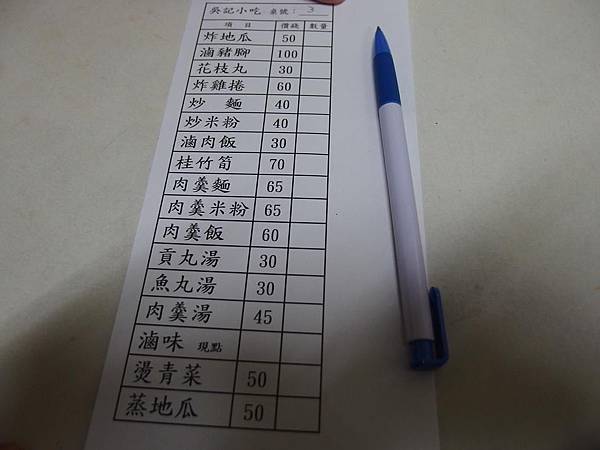 吳記小吃 桌號: 3
項 目 價錢 數量
炸地瓜 50
滷豬腳 100
花枝丸 30
炸雞捲 60
炒 麵 40
炒米粉 40
滷肉飯 30
桂竹筍 70
肉羹麵 65
肉羹米粉 65
肉羹飯 60
貢丸湯 30
魚丸湯 30
肉羹湯 45
滷味 現點
燙青菜 50
蒸地瓜 50